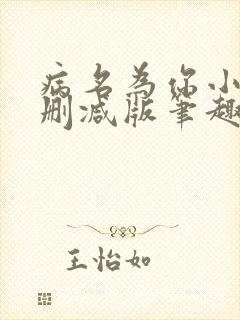 病名为你小
删减版笔趣
王怡如